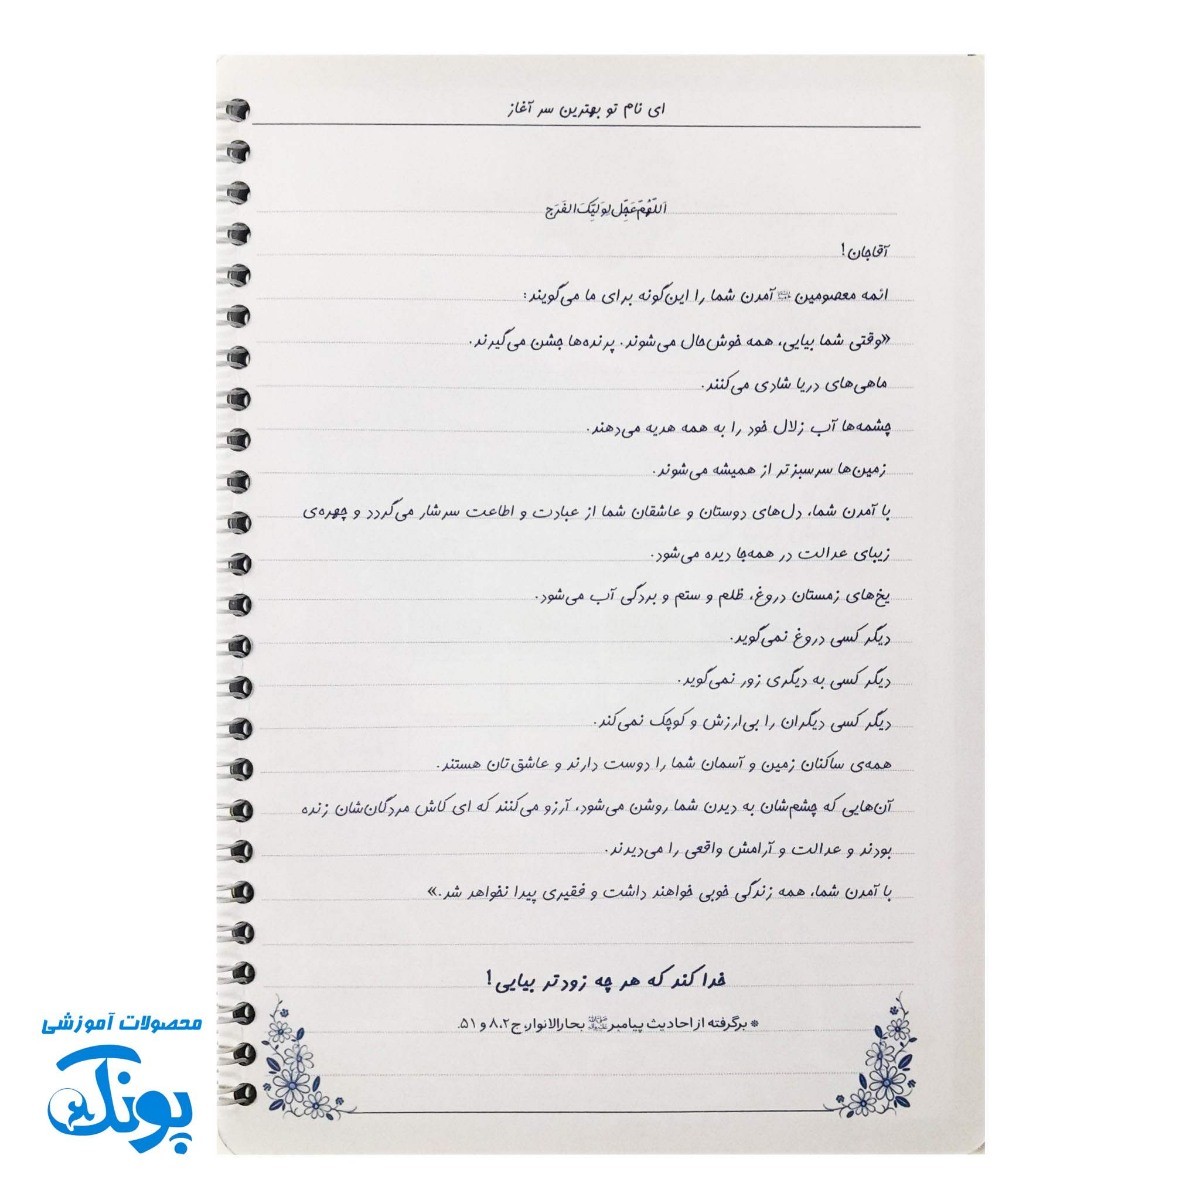 ای نام تو بهترین سر آغاز
اَللّهُمَّ عَجِّل لِوَلیِّکَ الفَرَج
آقاجان!
ائمه معصومین آمدن شما را این‌گونه برای ما می‌گویند:
«وقتی شما بیایی، همه خوش‌حال می‌شوند. پرنده‌ها جشن می‌گیرند.
ماهی‌های دریا شادی می‌کنند.
چشمه‌ها آب زلال خود را به همه هدیه می‌دهند.
زمین‌ها سرسبزتر از همیشه می‌شوند.
با آمدن شما، دل‌های دوستان و عاشقان شما از عبادت و اطاعت سرشار می‌گردد و چهره‌ی
زیبای عدالت در همه‌جا دیده می‌شود.
یخ‌های زمستان دروغ، ظلم و ستم و بردگی آب می‌شود.
دیگر کسی دروغ نمی‌گوید.
دیگر کسی به دیگری زور نمی‌گوید.
دیگر کسی دیگران را بی‌ارزش و کوچک نمی‌کند.
همه‌ی ساکنان زمین و آسمان شما را دوست دارند و عاشق‌تان هستند.
آن‌هایی که چشم‌شان به دیدن شما روشن می‌شود، آرزو می‌کنند که ای کاش مردگان‌شان زنده
بودند و عدالت و آرامش واقعی را می‌دیدند.
با آمدن شما، همه زندگی خوبی خواهند داشت و فقیری پیدا نخواهد شد.»
خدا کند که هر چه زودتر بیایی!
* برگرفته از احادیث پیامبر بحارالانوار، ج ۸،۲ و ۵۱.
محصولات آموزشی
پونک